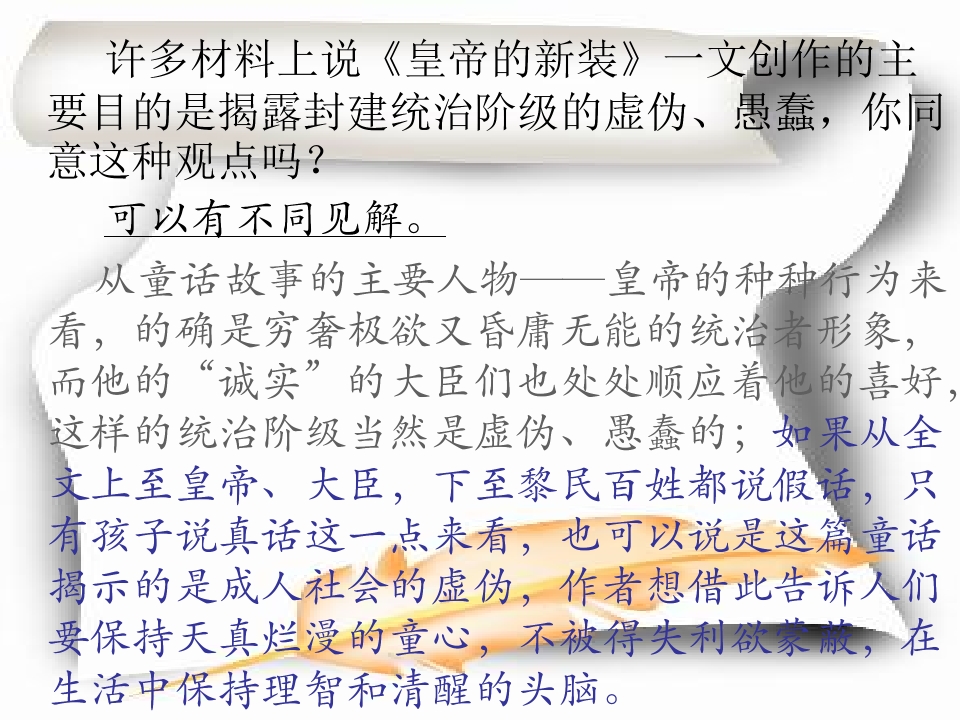 许多材料上说《皇帝的新装》一文创作的主
要目的是揭露封建统治阶级的虚伪、愚蠢，你同
意这种观点吗？
可以有不同见解。
从童话故事的主要人物——皇帝的种种行为来
看，的确是穷奢极欲又昏庸无能的统治者形象，
而他的“诚实”的大臣们也处处顺应着他的喜好，
这样的统治阶级当然是虚伪、愚蠢的；如果从全
文上至皇帝、大臣，下至黎民百姓都说假话，只
有孩子说真话这一点来看，也可以说是这篇童话
揭示的是成人社会的虚伪，作者想借此告诉人们
要保持天真烂漫的童心，不被得失利欲蒙蔽，在
生活中保持理智和清醒的头脑。